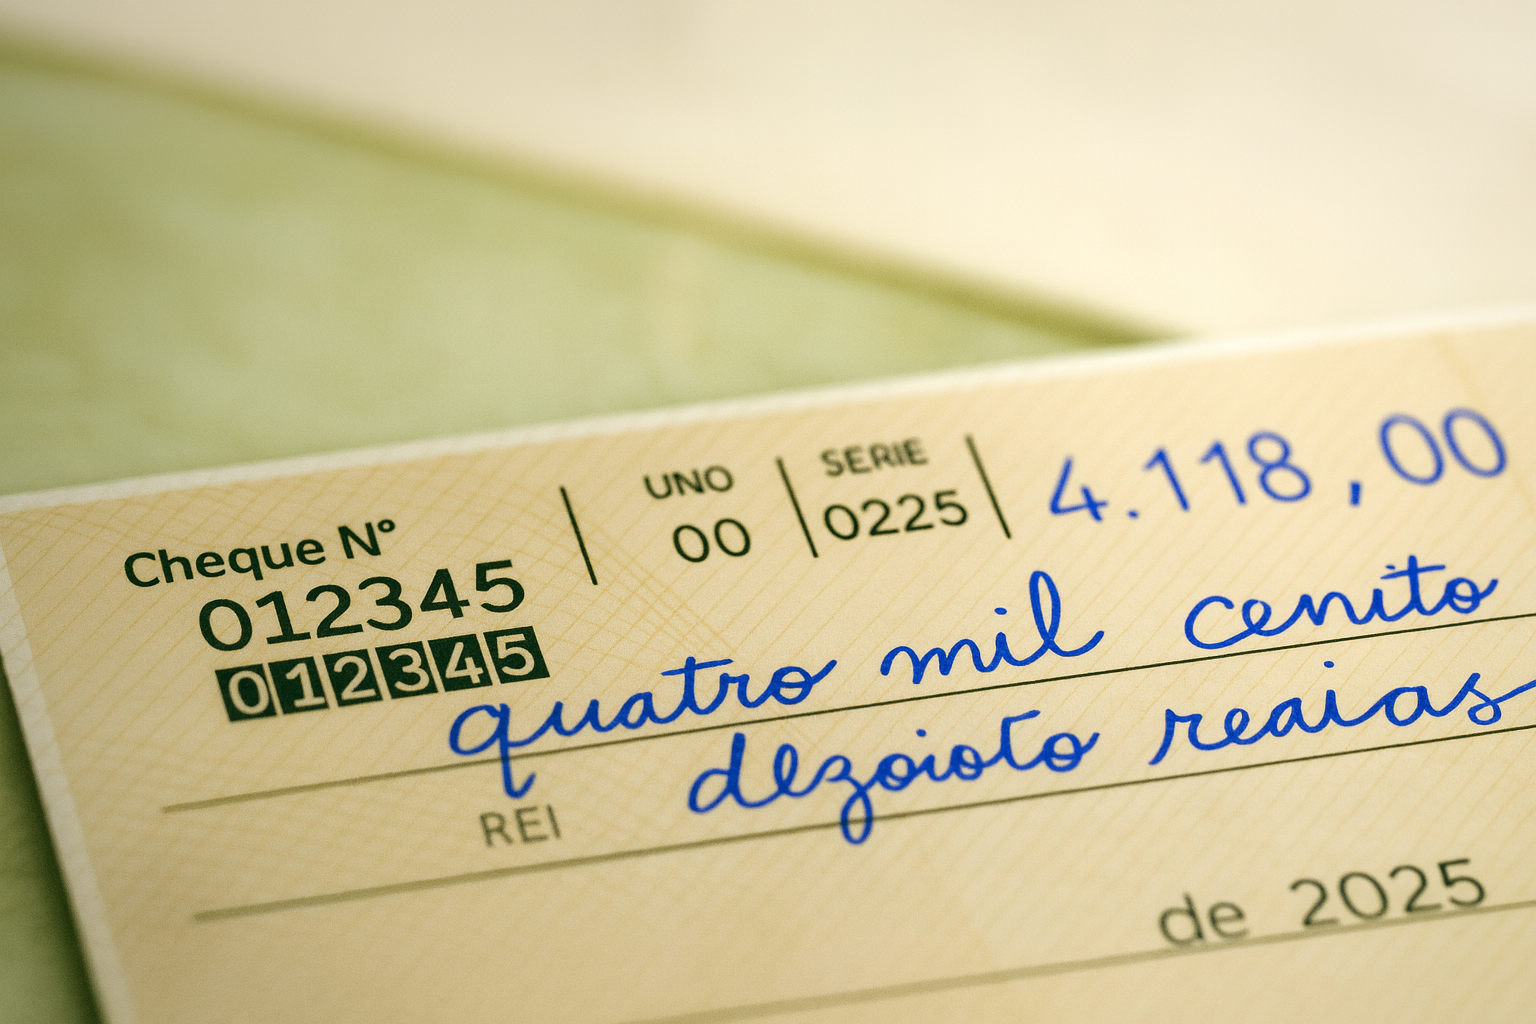 Cheque Nº
012345
012345
UNO
00
SERIE
0225
4.118,00
quatro mil cenito
REI
dezoioto reaias
de 2025